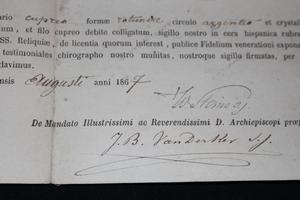 ario cupreo formæ rotundæ circulo argenteo et crystal
um, et filo cupreo debite colligatum, sigillo nostro in cera hispanica rubra
SS. Reliquiæ, de licentia quorum interest, publicæ Fidelium venerationi expon
testimoniales chirographo nostro munitas, nostroque sigillo firmatas, per
davimus.
ensis Augusti anni 1867
De Mandato Illustrissimi ac Reverendissimi D. Archiepiscopi præf
J. B. Vanderker s.j.